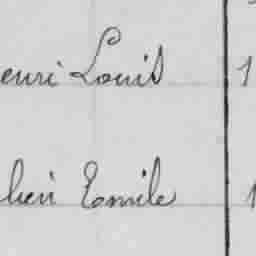 enri Louis 1
Emile 1